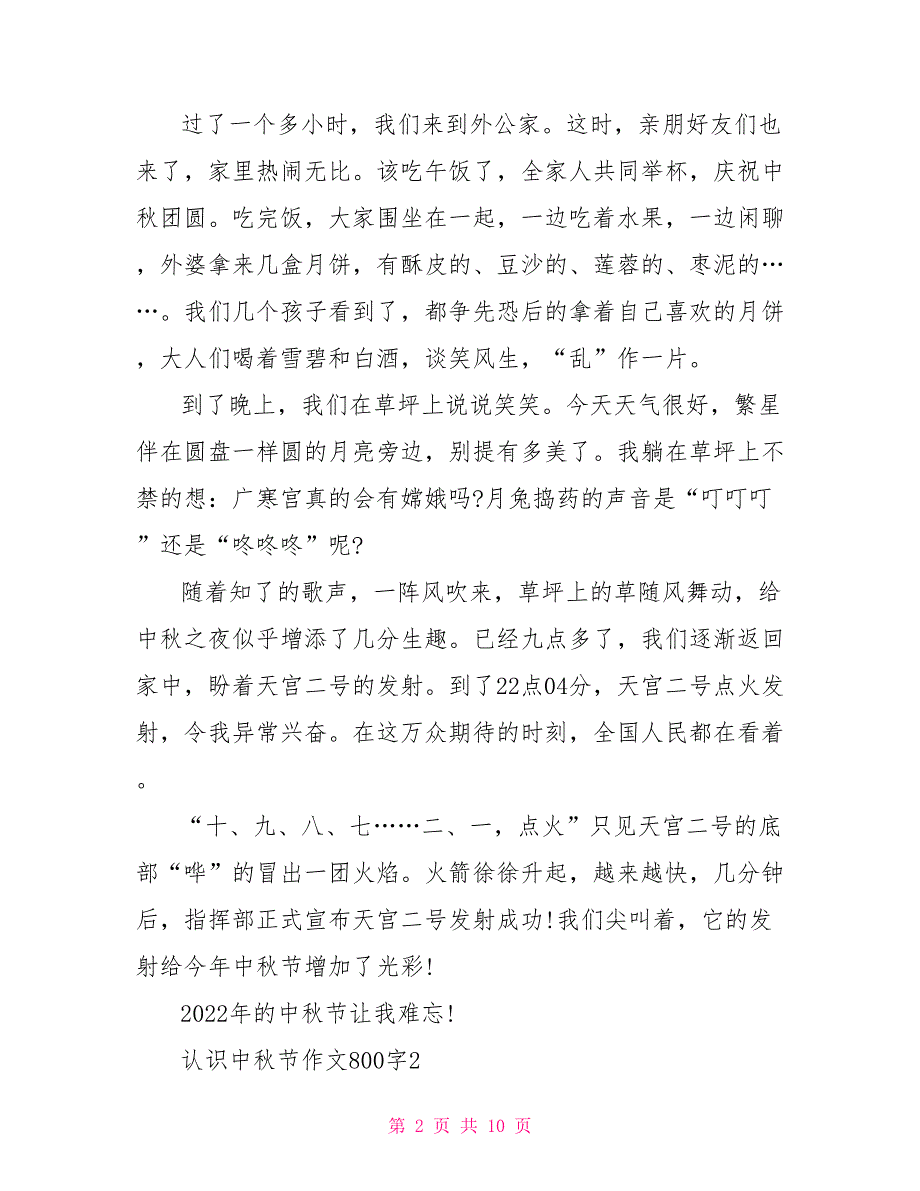 过了一个多小时，我们来到外公家。这时，亲朋好友们也
来了，家里热闹无比。该吃午饭了，全家人共同举杯，庆祝中
秋团圆。吃完饭，大家围坐在一起，一边吃着水果，一边闲聊
，外婆拿来几盒月饼，有酥皮的、豆沙的、莲蓉的、枣泥的…
…。我们几个孩子看到了，都争先恐后的拿着自己喜欢的月饼
，大人们喝着雪碧和白酒，谈笑风生，“乱”作一片。
到了晚上，我们在草坪上说说笑笑。今天天气很好，繁星
伴在圆盘一样圆的月亮旁边，别提有多美了。我躺在草坪上不
禁的想：广寒宫真的会有嫦娥吗?月兔捣药的声音是“叮叮叮
”还是“咚咚咚”呢?
随着知了的歌声，一阵风吹来，草坪上的草随风舞动，给
中秋之夜似乎增添了几分生趣。已经九点多了，我们逐渐返回
家中，盼着天宫二号的发射。到了22点04分，天宫二号点火发
射，令我异常兴奋。在这万众期待的时刻，全国人民都在看着
。
“十、九、八、七……二、一，点火”只见天宫二号的底
部“哗”的冒出一团火焰。火箭徐徐升起，越来越快，几分钟
后，指挥部正式宣布天宫二号发射成功!我们尖叫着，它的发
射给今年中秋节增加了光彩!
2022年的中秋节让我难忘!
认识中秋节作文800字2
第 2 页 共 10 页